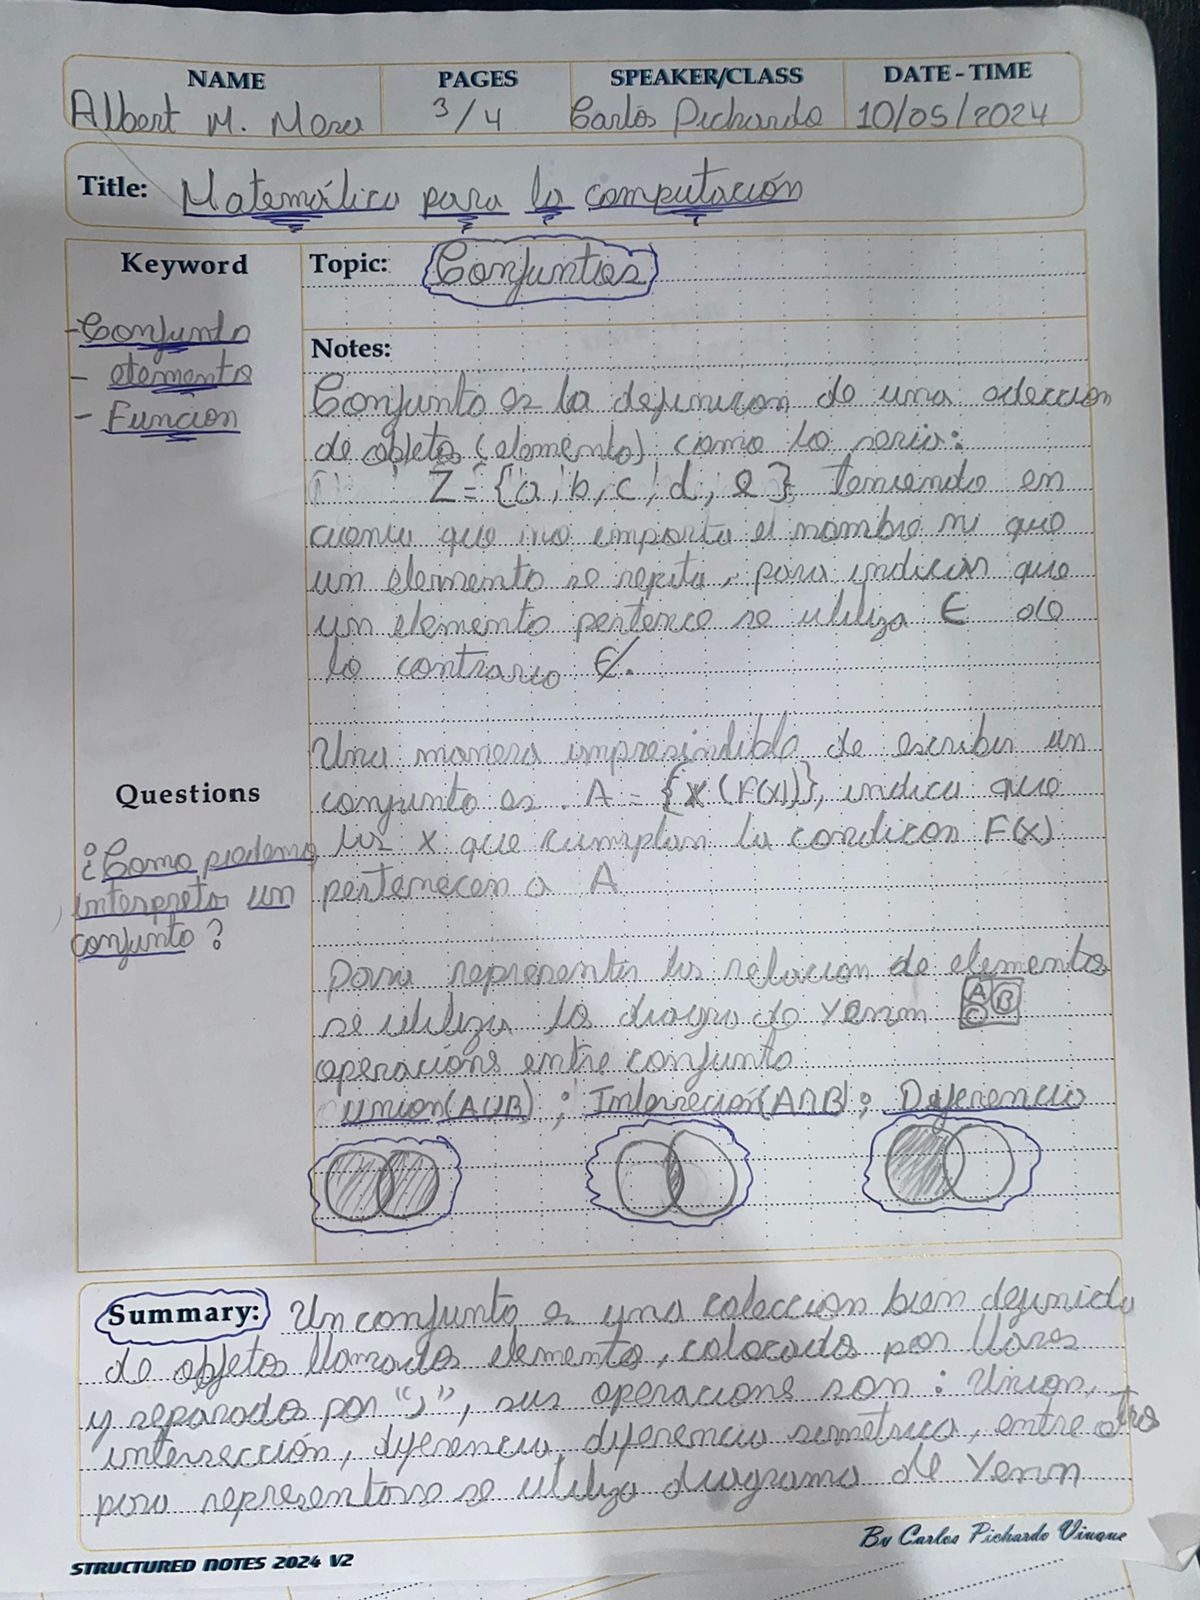 NAME PAGES SPEAKER/CLASS DATE - TIME
Albert M. Mora 3/4 Carlos Pichardo 10/05/2024
Title: Matemática para la computación
Keyword
- Conjunto
- elemento
- Funcion
Topic: Conjuntos
Notes:
Conjunto es la definicion de una coleccion
de objeto (elemento) como lo seria:
Z = {a, b, c, d, e} teniendo en
cuenta que no importa el nombre ni que
un elemento se repita, para indicar que
un elemento pertenece se utiliza ∈ de
lo contrario ∉.
Una manera impresindible de escribir un
conjunto es. A = {x (F(x)}, indica que
las x que cumplan la condicon F(x)
pertenecen a A
Questions
¿Como podemos
interpretar un
conjunto?
para representar las relacion de elementos
se utiliza los diagra de Venn A B C
operacións entre conjunto
union(A∪B) ; Interseción(A∩B) ; Diferencia
Summary: Un conjunto es una coleccion bien definida
de objetos llamados elemento, colocados por llaves
y separados por ",", sus operacions son: Union,
intersección, diferencia, diferencia simétrica, entre otros
para representarse se utiliza diagrama de Venn
By Carlos Pichardo Viuque
STRUCTURED NOTES 2024 V2